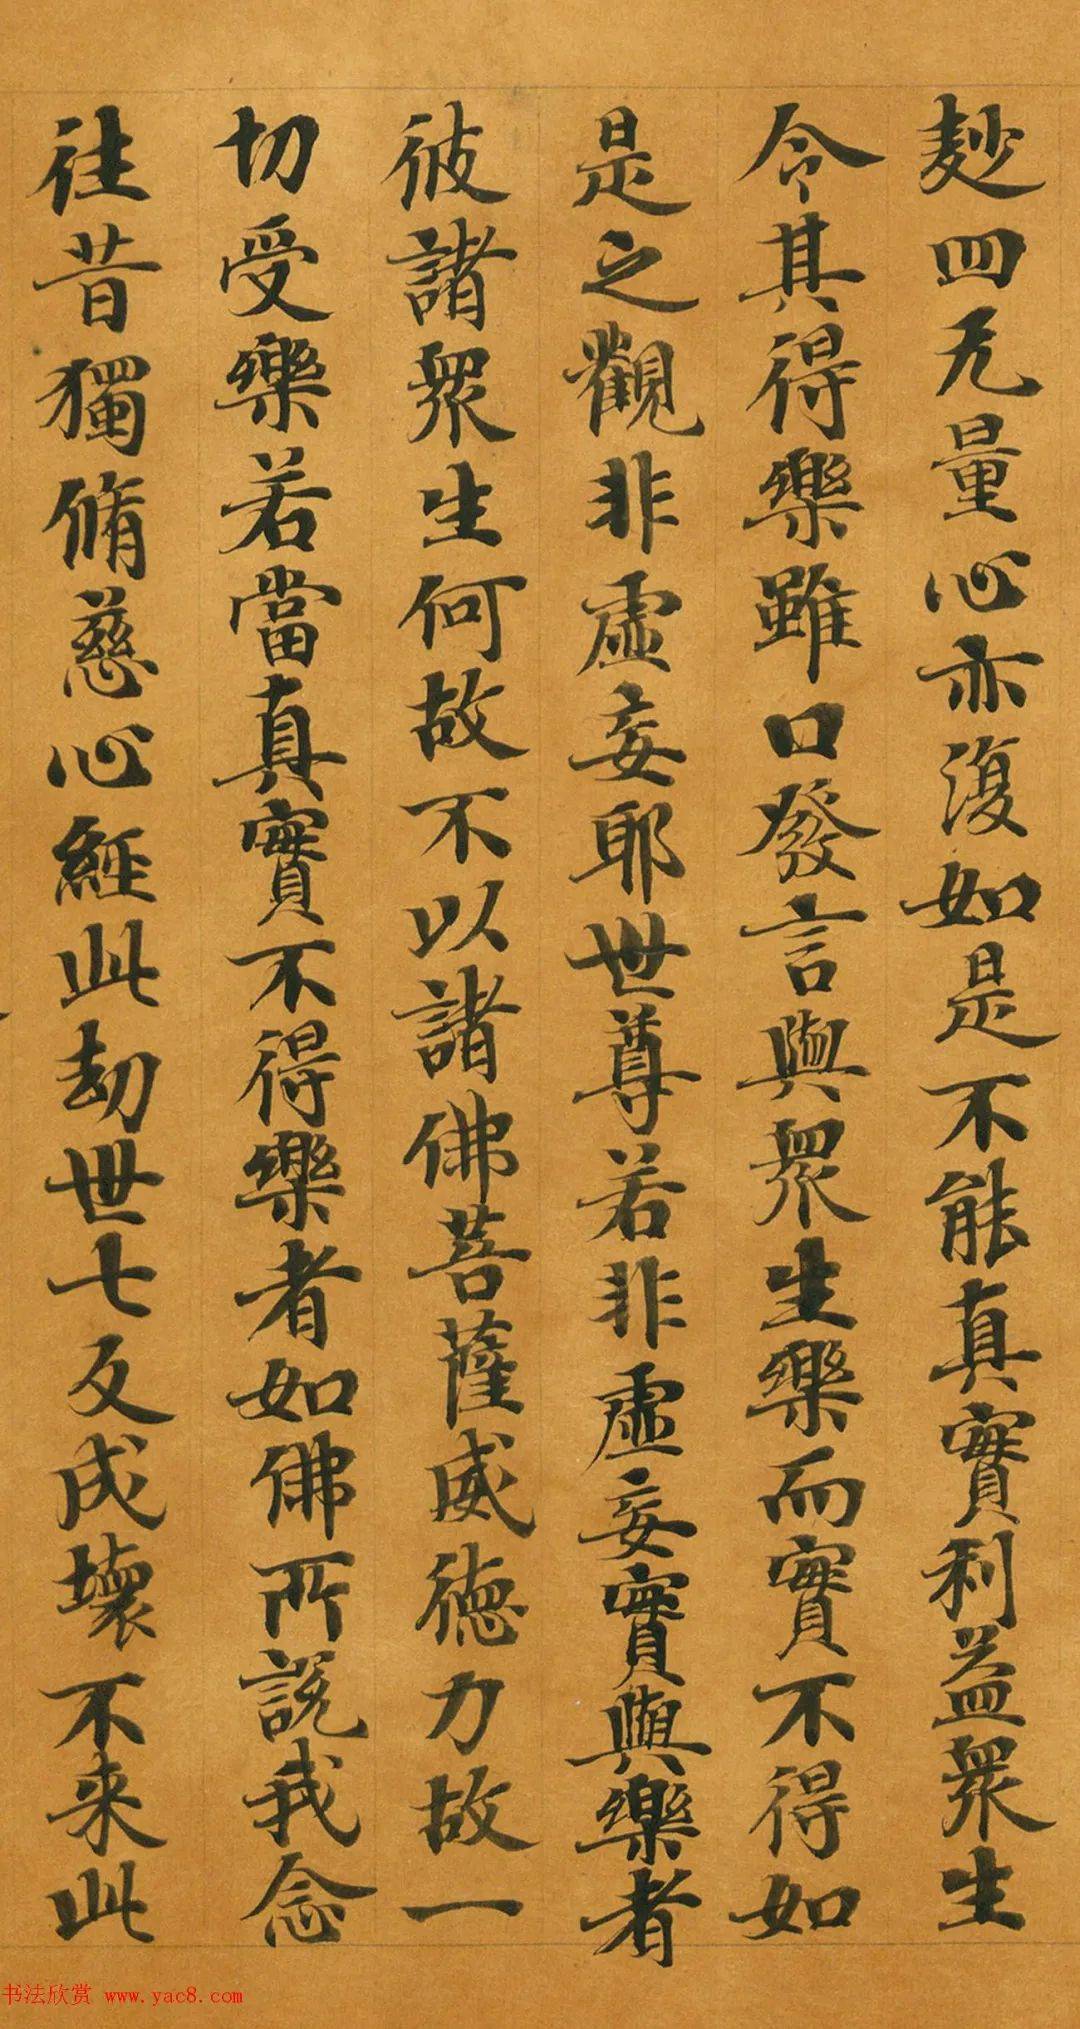 麨四无量心亦復如是不能真實利益衆生
令其得樂雖口發言與衆生樂而實不得如
是之觀非虛妄耶世尊若非虛妄實與樂者
彼諸衆生何故不以諸佛菩薩威德力故一
切受樂若當真實不得樂者如佛所說我念
往昔獨脩慈心經此劫世七反成壞不来此
书法欣赏 www.yac8.com